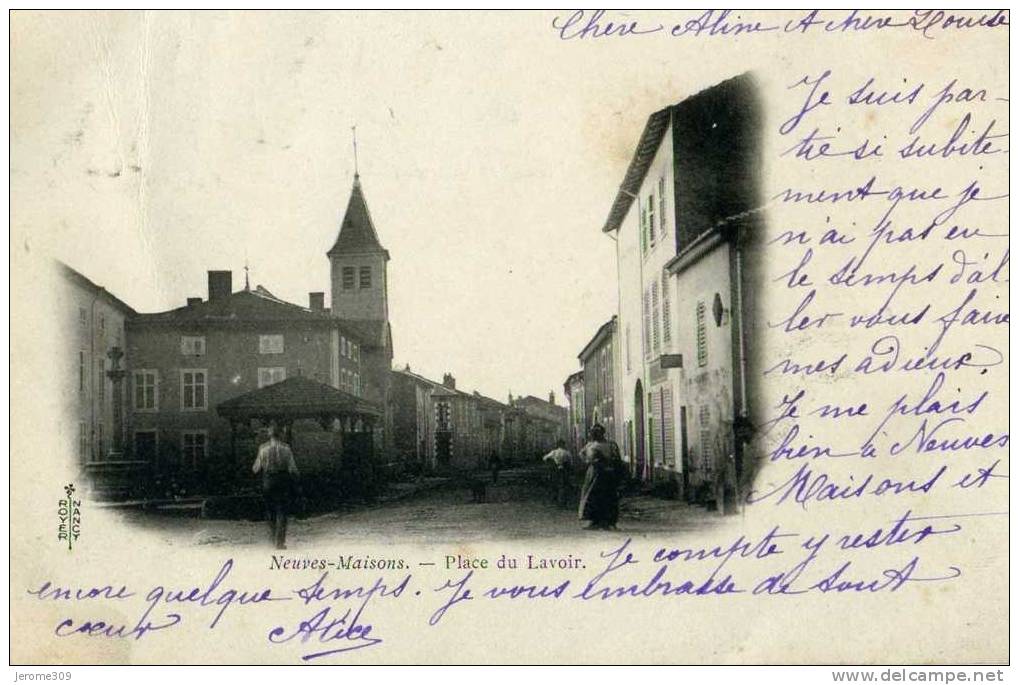 Chère Aline & chère Louise
Je suis par-
tie si subite-
ment que je
n'ai pas eu
le temps d'al-
ler vous faire
mes adieux.
Je me plais
bien à Neuves
Maisons et
Je compte y rester
encore quelque temps. Je vous embrasse de tout
cœur Alice
Neuves-Maisons. — Place du Lavoir.
ROYER
NANCY
jerome309
www.delcampe.net